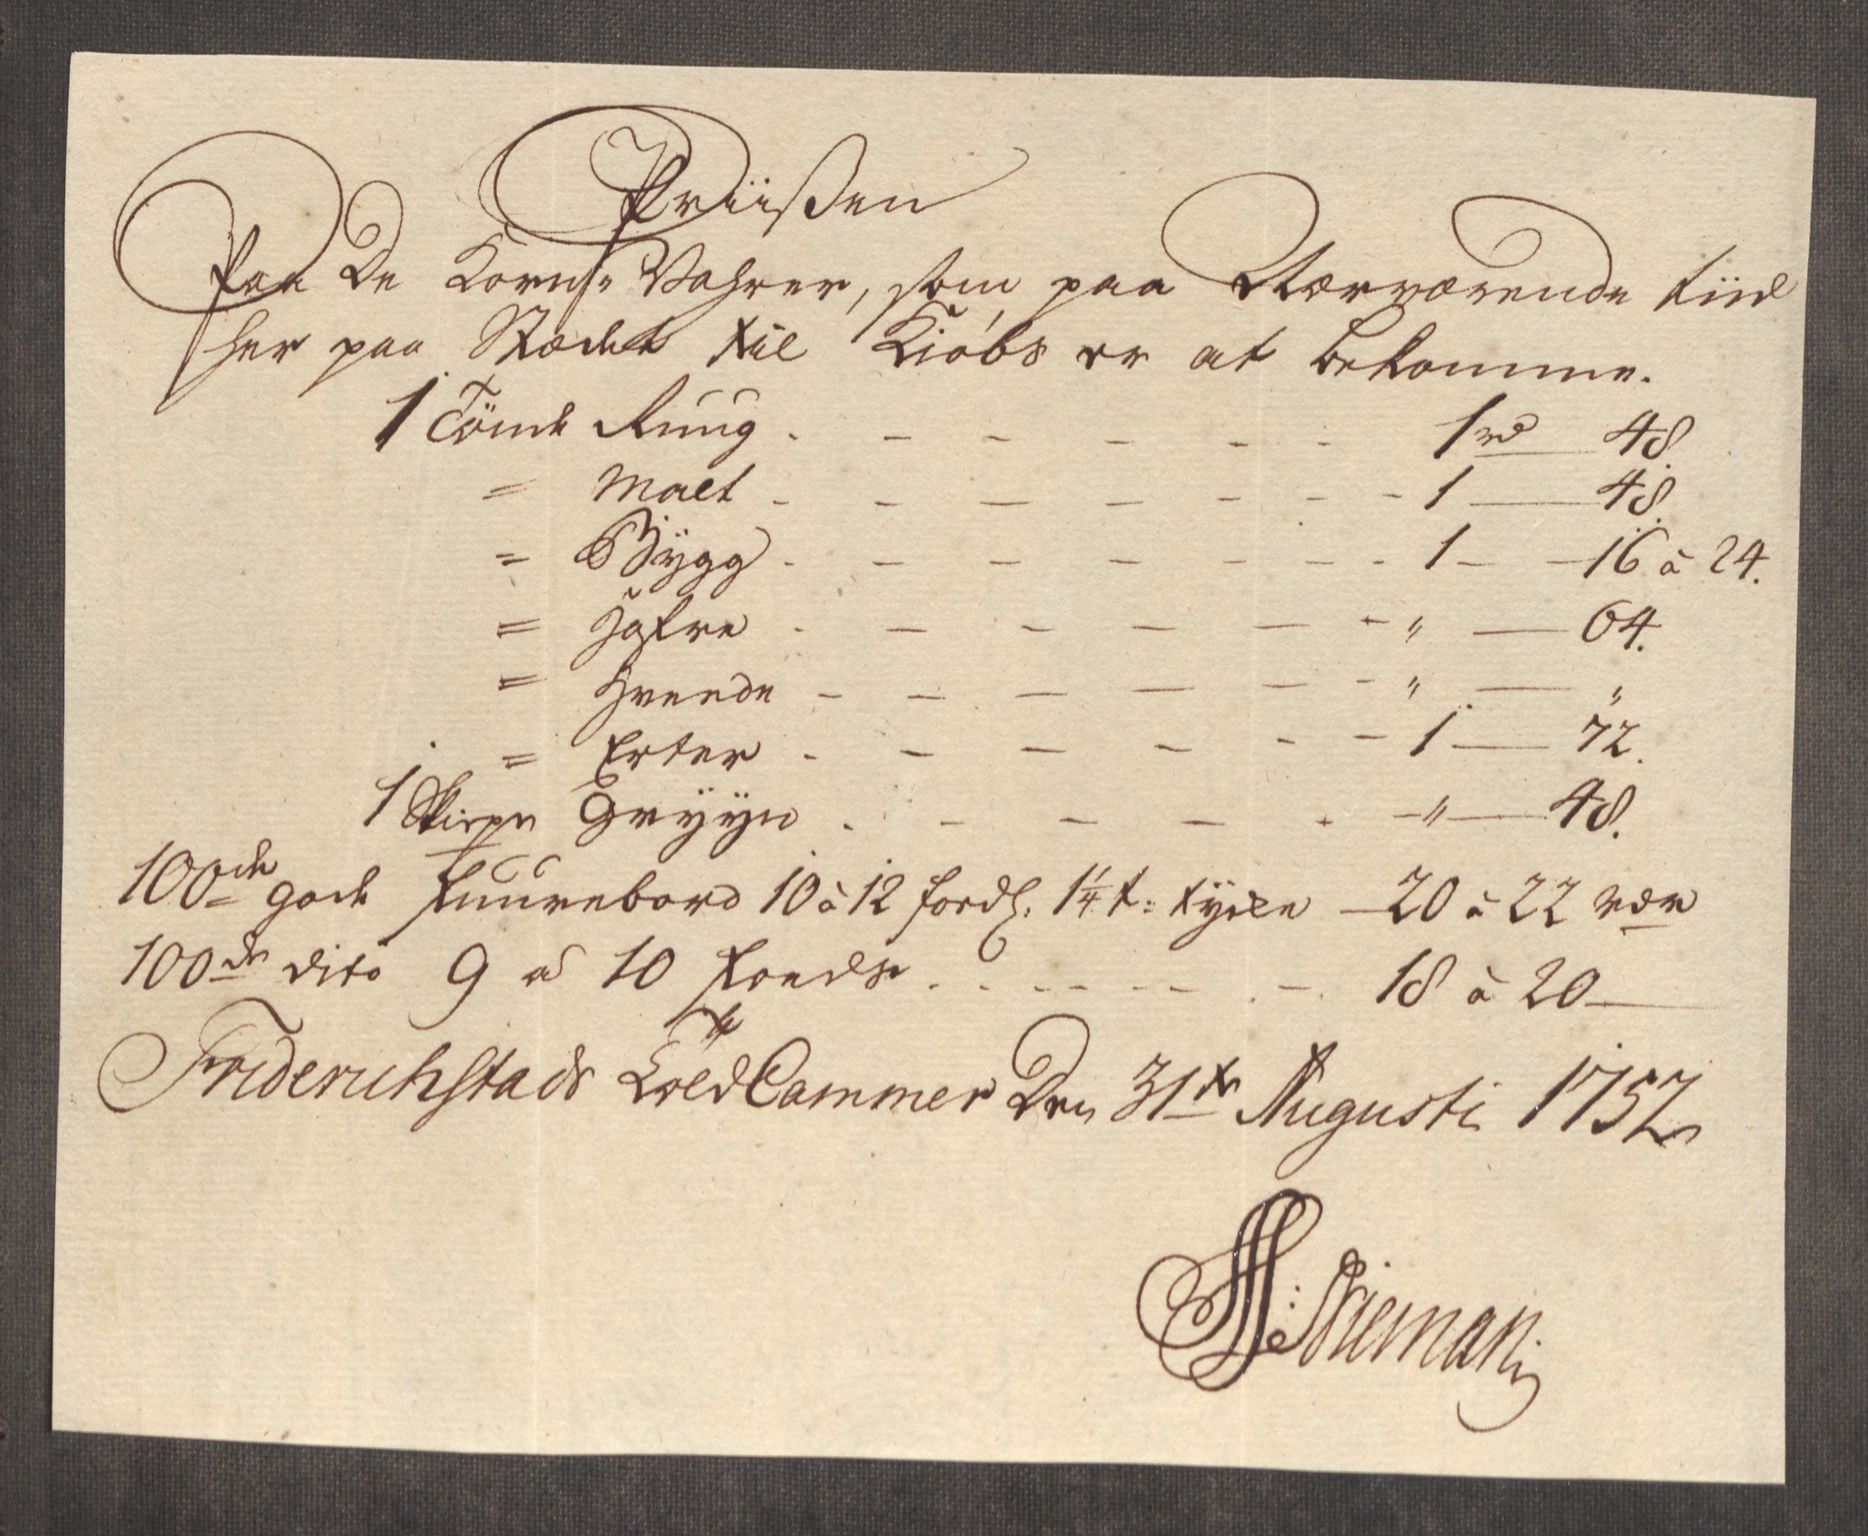 Priisen
Paa De Korn Vahrer, som paa Nærværende tiid
her paa Stædet til Kiøbs er at bekomme.
1 Tönde Ruug . - - - - - - 1 rd 48.
= Malt - - - - - - - - 1 — 48.
= Bÿgg . - - - - - - - 1 — 16 à 24.
= Hafre . - - - - - " — 64.
= Hveede - - - - - - - " — "
= Erter . - - - - - - 1 — 72.
1 Skieppe Grÿÿn . - - - - - " — 48.
100de gode Fuurebord 10 à 12 fods. 1¼ t: tÿcke — 20 à 22 rdr
100de dito 9 à 10 fods . . - - - - . - . 18 à 20 —
Friderichstads Told Cammer Den 31te Augusti 1752
Nieman